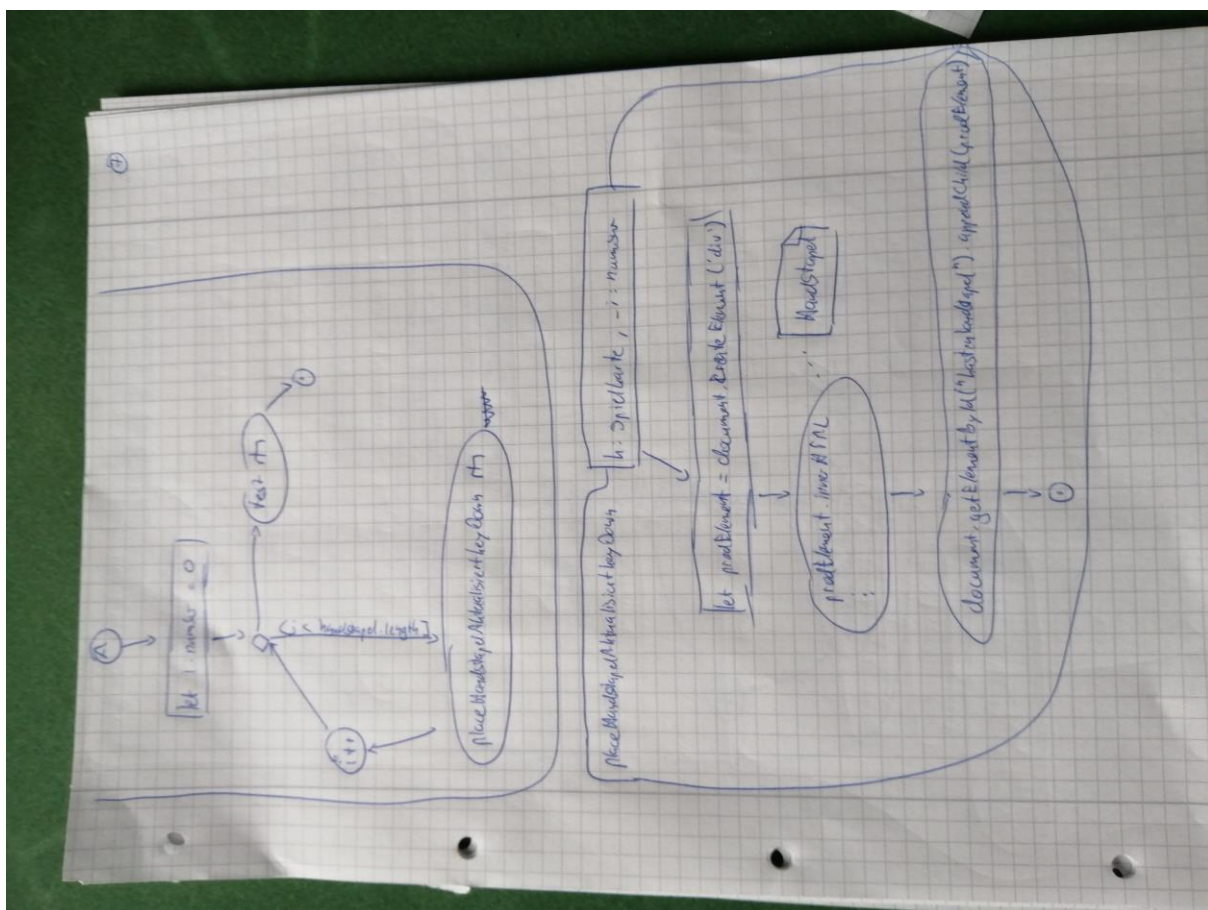 7
let i: number = 0
[i < handstapel.length]
test
i++
placeHandstapelAktualisiertkeyDown
placeHandstapelAktualisiertkeyDown
h: Spielkarte, -i: number
let prodElement = document.createElement('div')
prodElement.innerHTML
:
Handstapel
document.getElementById("kastenhandstapel").appendChild(prodElement)